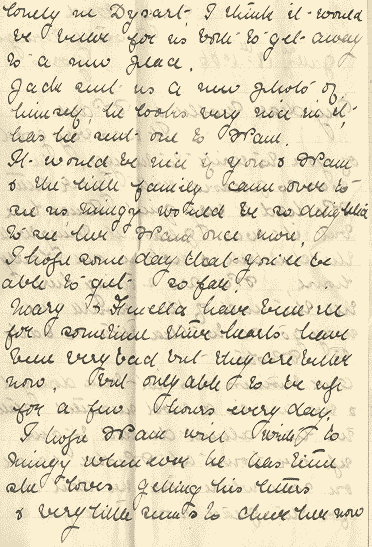 lonely in Dysart. I think it would
be better for us both to get away
to a new place.
Jack sent us a new photo of
himself, he looks very nice in it,
has he sent one to Sam.
It would be nice if you & Sam
& the little family came over to
see us Mingy would be so delighted
to see her Sam once more.
I hope some day that you'll be
able to get so far.
Mary & Finella have been ill
for sometime their hearts have
been very bad but they are better
now. But only able to be up
for a few hours every day.
I hope Sam will write to
Mingy whenever he has time
she loves getting his letters
& very little needs to cheer her now